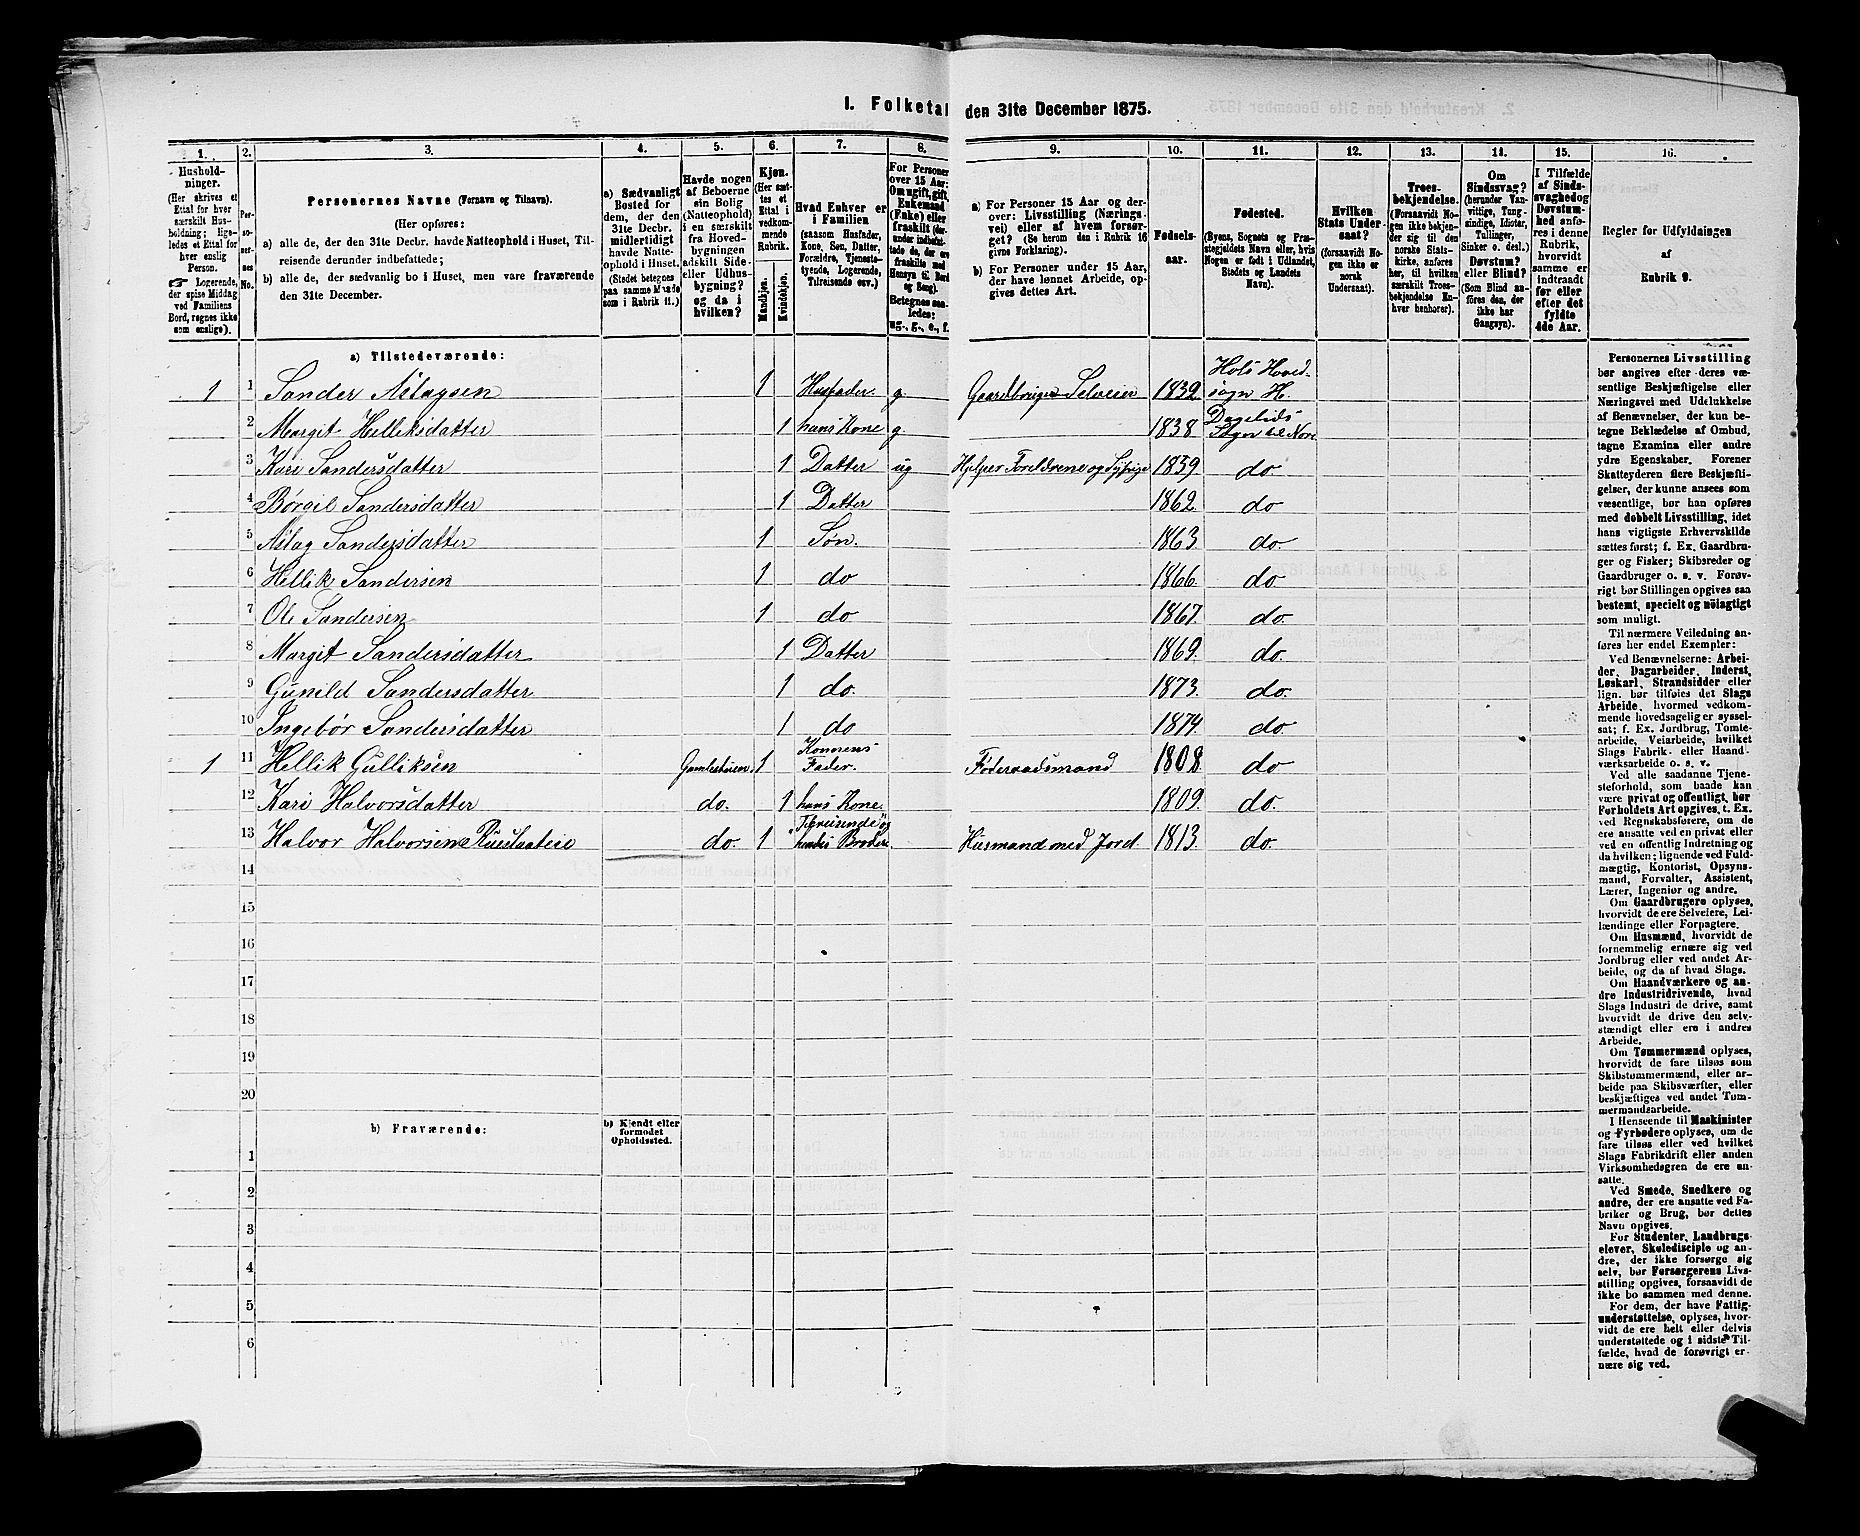 I. Folketal den 31te December 1875.
1. 2. 3. 4. 5. 6. 7. 8. 9. 10. 11. 12. 13. 14. 15. 16.
Hushold-
ninger.
(Her skrives et
Ettal for hver
særskilt Hus-
holdning; lige-
ledes et Ettal for
hver enslig
Person.
☛ Logerende,
der spise Middag
ved Familiens
Bord, regnes ikke
som enslige).
Per-
soner-
nes
No.
Personernes Navne (Fornavn og Tilnavn).
(Her opføres:
a) alle de, der den 31te Decbr. havde Natteophold i Huset, Til-
reisende derunder indbefattede;
b) alle de, der sædvanlig bo i Huset, men vare fraværende
den 31te December.
a) Sædvanligt
Bosted for
dem, der den
31te Decbr.
midlertidigt
havde Natte-
ophold i Huset.
(Stedet betegnes
paa samme Maade
som i Rubrik 11.)
Havde nogen
af Beboerne
sin Bolig
(Natteophold)
i en særskilt
fra Hoved-
bygningen
adskilt Side-
eller Udhus-
bygning?
og da i
hvilken?
Kjøn.
(Her sæt-
tes et
Ettal i
vedkom-
mende
Rubrik.
Mandkjøn.
Kvindekjøn.
Hvad Enhver er
i Familien
(saasom Husfader,
Kone, Søn, Datter,
Forældre, Tjeneste-
tyende, Logerende,
Tilreisende osv.)
For Personer
over 15 Aar:
Om ugift, gift,
Enkemand
(Enke) eller
fraskilt (der-
under indbefat-
tede de, der ere
fraskilte med
Hensyn til Bord
og Seng).
Betegnes saa-
ledes:
ug., g., e., f.
a) For Personer 15 Aar og der-
over: Livsstilling (Nærings-
vei) eller af hvem forsør-
get? (Se herom den i Rubrik 16
givne Forklaring).
b) For Personer under 15 Aar,
der have lønnet Arbeide, op-
gives dettes Art.
Fødsels-
aar.
Fødested.
(Byens, Sognets og Præ-
stegjeldets Navn eller, hvis
Nogen er født i Udlandet,
Stedets og Landets
Navn).
Hvilken
Stats Under-
saat?
(forsaavidt No-
gen ikke er
norsk
Undersaat).
Troes-
bekjendelse.
(Forsaavidt No-
gen ikke bekjen-
der sig til den
norske Stats-
kirke, anføres
her, til hvilken
særskilt Troes-
bekjendelse En-
hver henhører).
Om
Sindssvag?
(herunder Van-
vittige, Tung-
sindige, Idioter,
Tullinger,
Sinker o. desl.)
Døvstum?
eller Blind?
(Som Blind an-
føres den, der
ikke har
Gangsyn).
I Tilfælde
af Sinds-
svaghed og
Døvstum-
hed anfø-
res i denne
Rubrik,
hvorvidt
samme er
indtraadt
før eller
efter det
fyldte
4de Aar.
Regler for Udfyldningen
af
Rubrik 9.
a) Tilstedeværende:
1 1 Sander Aslagsen 1 Husfader. g. Gaardbruger Selveier 1832 Hols Hoved-
sogn H.
2 Margit Helliksdatter 1 hans Kone g. 1838 Dagalids
Sogn til Nore
3 Kari Sandersdatter 1 Datter ug Hjelper Forældrene og 1859 do
4 Børgil Sandersdatter 1 Datter 1862. do
5 Aslag Sandersdatter 1 Søn. 1863 do.
6 Hellik Sandersen 1 do 1866. do
7 Ole Sandersen 1 do 1867. do.
8 Margit Sandersdatter 1 Datter 1869. do.
9 Gunild Sandersdatter 1 do. 1873. do.
10 Ingebør Sandersdatter 1 do 1874. do.
1 11 Hellik Gulliksen 1 Konens
Fader. Føderaadsmand 1808. do
12 Kari Halvorsdatter do. 1 hans Kone. 1809. do.
13 Halvor Halvorsen do. 1 Tilreisende og
hendes Broder Husmand med Jord 1813. do.
14
15
16
17
18
19
20
b) Fraværende:
b) Kjendt eller
formodet
Opholdssted.
1
2
3
4
5
6
Personernes Livsstilling
bør angives efter deres væ-
sentlige Beskjæftigelse eller
Næringsvei med Udelukkelse
af Benævnelser, der kun be-
tegne Beklædelse af Ombud,
tagne Examina eller andre
ydre Egenskaber. Forener
Skatteyderen flere Beskjæfti-
gelser, der kunne ansees som
væsentlige, bør han opføres
med dobbelt Livsstilling, idet
hans vigtigste Erhvervskilde
sættes først; f. Ex. Gaardbru-
ger og Fisker; Skibsreder og
Gaardbruger o. s. v. Forøv-
rigt bør Stillingen opgives saa
bestemt, specielt og nöiagtigt
som muligt.
Til nærmere Veiledning an-
føres her endel Exempler:
Ved Benævnelserne: Arbei-
der, Dagarbeider, Inderst,
Løskarl, Strandsidder eller
lign. bør tilføies det Slags
Arbeide, hvormed vedkom-
mende hovedsagelig er syssel-
sat; f. Ex. Jordbrug, Tomte-
arbeide, Veiarbeide, hvilket
Slags Fabrik- eller Haand-
værksarbeide o. s. v.
Ved alle saadanne Tjene-
steforhold, som baade kan
være privat og offentligt, bør
Forholdets Art opgives, t. Ex.
ved Regnskabsførere, om de
ere ansatte ved en privat eller
ved en offentlig Indretning og
da hvilken; lignende ved Fuld-
mægtig, Kontorist, Opsyns-
mand, Forvalter, Assistent,
Lærer, Ingeniør og andre.
Om Gaardbrugere oplyses,
hvorvidt de ere Selveiere, Lei-
lændinge eller Forpagtere.
Om Husmænd, hvorvidt de
fornemmelig ernære sig ved
Jordbrug eller ved andet Ar-
beide, og da af hvad Slags.
Om Haandværkere og an-
dre Industridrivende, hvad
Slags Industri de drive, samt
hvorvidt de drive den selv-
stændigt eller ere i andres
Arbeide.
Om Tømmermænd oplyses,
hvorvidt de fare tilsøs som
Skibstømmermænd, eller ar-
beide paa Skibsværfter, eller
beskjæftiges ved andet Tøm-
mermandsarbeide.
I Henseende til Maskinister
og Fyrbødere oplyses, om de
fare tilsøs eller ved hvilket
Slags Fabrikdrift eller anden
Virksomhedsgren de ere an-
satte.
Ved Smede, Snedkere og
andre, der ere ansatte ved Fa-
briker og Brug, bør dettes
Navn opgives.
For Studenter, Landbrugs-
elever, Skoledisciple og an-
dre, der ikke forsørge sig
selv, bør Forsørgerens Livs-
stilling opgives, forsaavidt de
ikke bo sammen med denne.
For dem, der have Fattig-
understøttelse, oplyses, hvor-
vidt de ere helt eller delvis
understøttede og i sidste Til-
fælde, hvad de forøvrigt er-
nære sig ved.